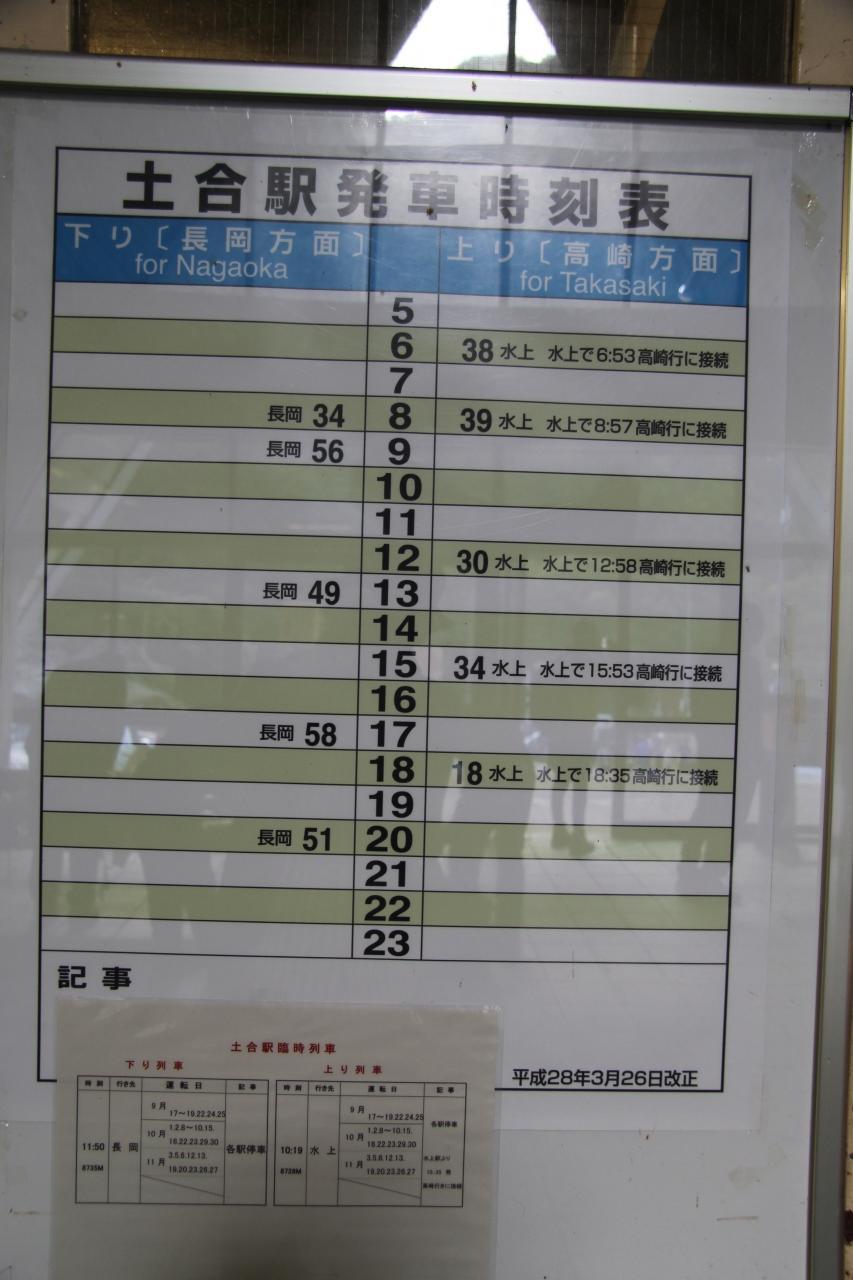 土合駅発車時刻表
下り〔長岡方面〕 上り〔高崎方面〕
for Nagaoka for Takasaki
5
6 38 水上 水上で6:53高崎行に接続
7
長岡 34 8 39 水上 水上で8:57高崎行に接続
長岡 56 9
10
11
12 30 水上 水上で12:58高崎行に接続
長岡 49 13
14
15 34 水上 水上で15:53高崎行に接続
16
長岡 58 17
18 18 水上 水上で18:35高崎行に接続
19
長岡 51 20
21
22
23
記事
平成28年3月26日改正
土合駅臨時列車
下り列車 上り列車
時刻 行き先 運転日 記事 時刻 行き先 運転日 記事
9月 17～19.22.24.25 9月 17～19.22.24.25
10月 1.2.8～10.15. 16.22.23.29.30 10月 1.2.8～10.15. 16.22.23.29.30
11月 3.5.6.12.13. 19.20.23.26.27 11月 3.5.6.12.13. 19.20.23.26.27
11:50 長岡 各駅停車 10:19 水上 各駅停車
8735M
水上駅より
高崎行きに接続